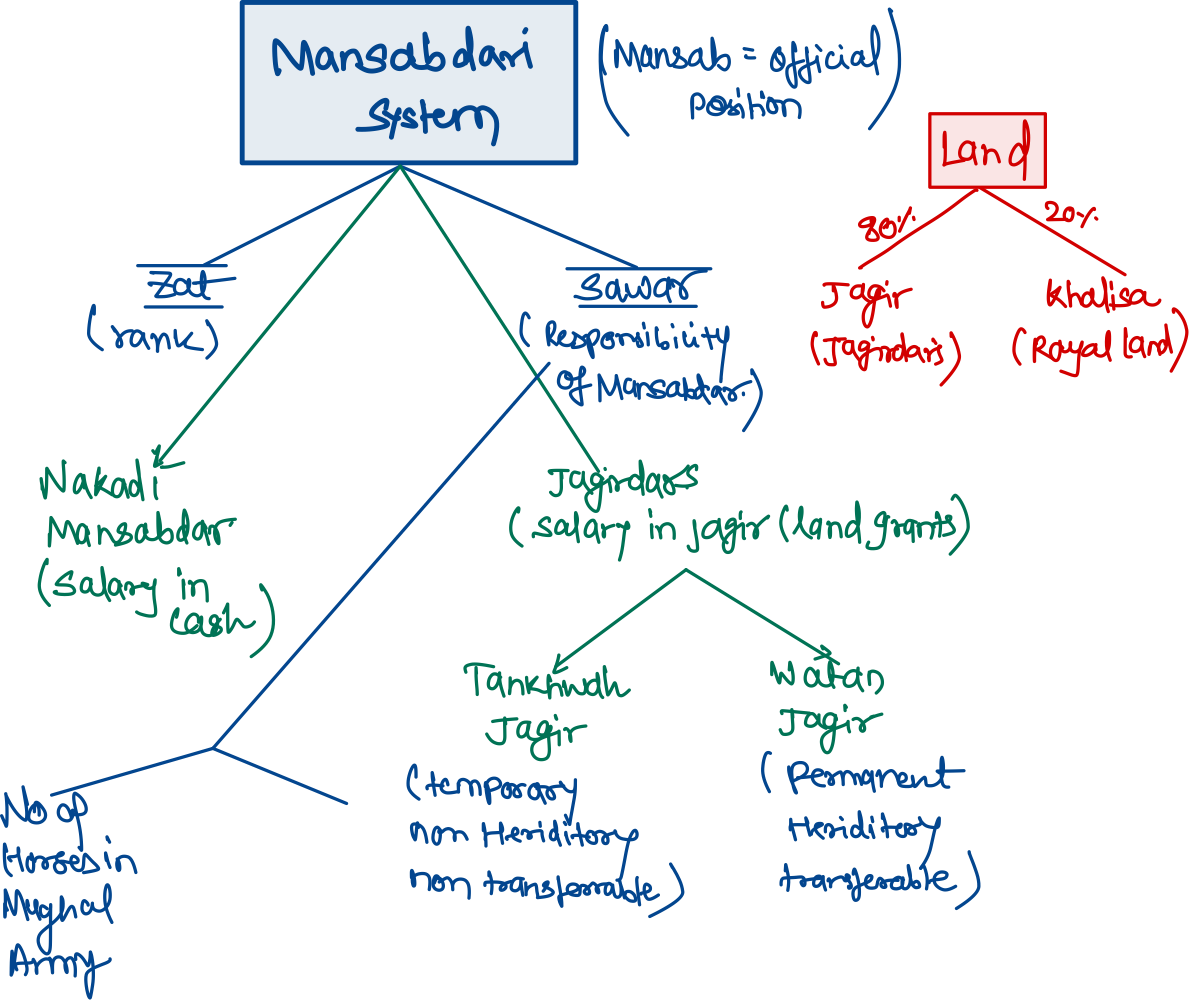 Mansabdari
System
(Mansab = official
position)
Land
80%
20%
Jagir
(Jagirdars)
Khalisa
(Royal land)
Zat
(rank)
Sawar
(Responsibility
of Mansabdar.)
Nakadi
Mansabdar
(Salary in
cash)
Jagirdars
(salary in jagir (land grants)
Tankhwah
Jagir
(temporary
non Heriditory
non transferrable)
Watan
Jagir
(Permanent
Heriditory
transferable)
No of
Horses in
Mughal
Army